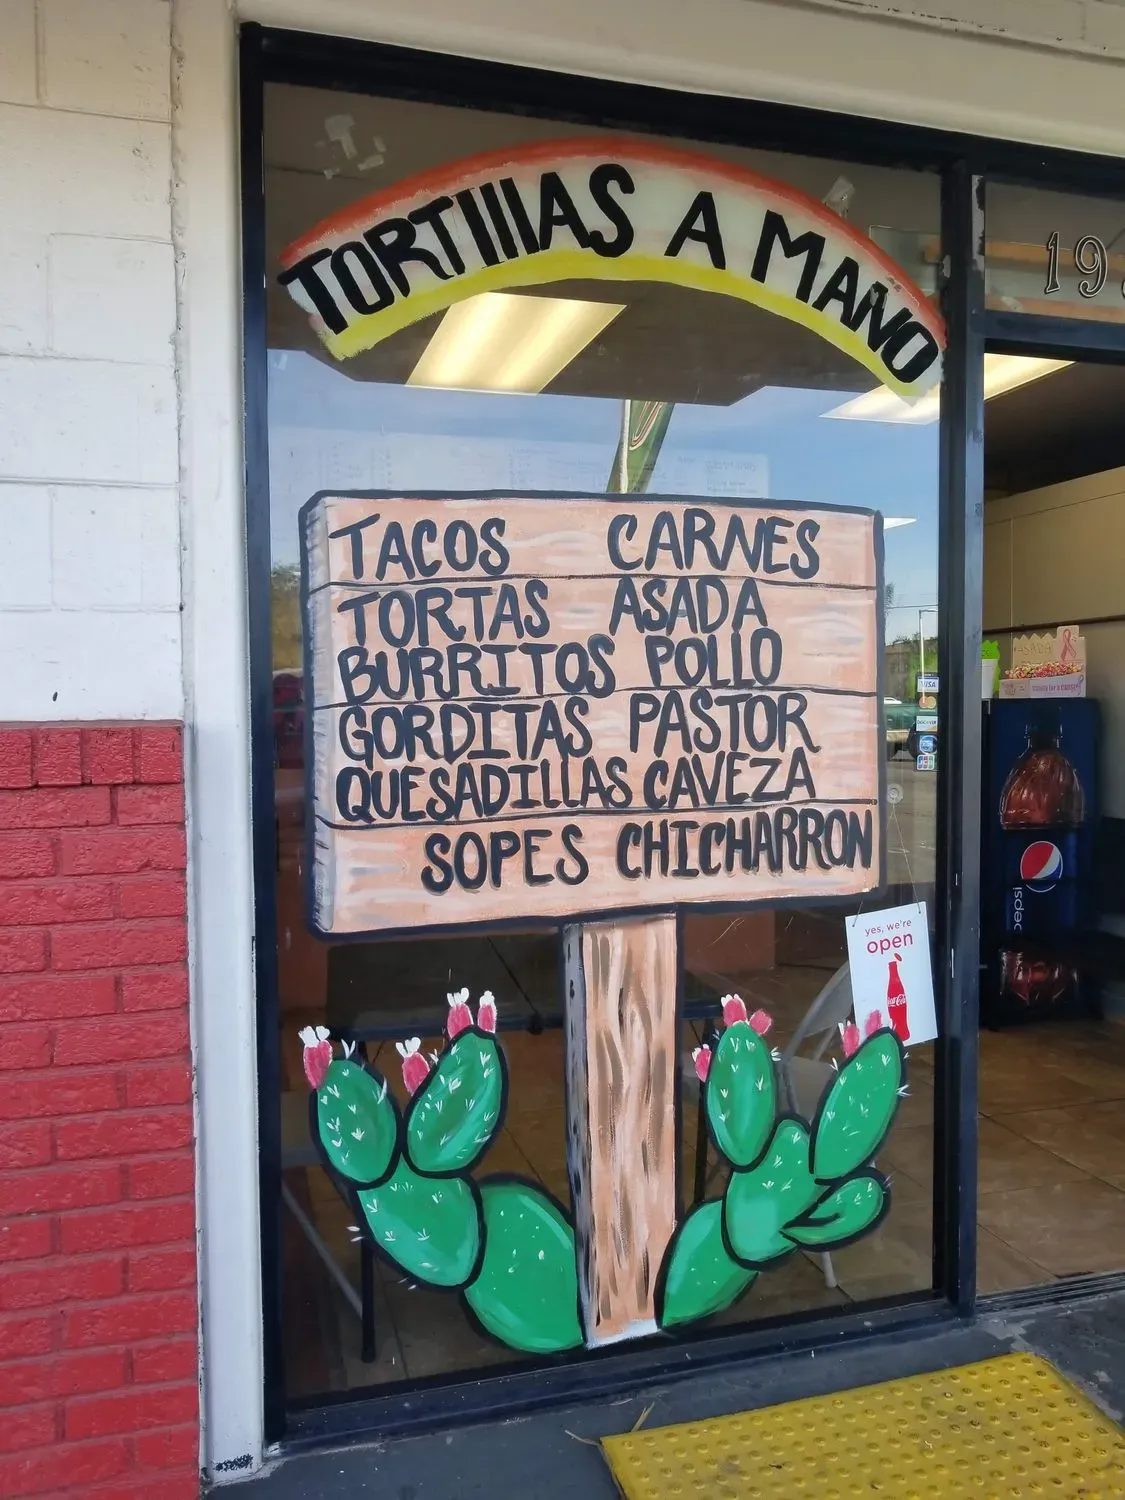 TORTIllAS A MANO
19
TACOS CARNES
TORTAS ASADA
BURRITOS POLLO
GORDITAS PASTOR
QUESADILLAS CAVEZA
SOPES CHICHARRON
yes, we're
open
Coca-Cola
pepsi
VISA
DISCOVER